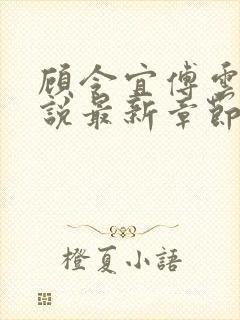 顾令宜傅雲
說最新章節
橙夏小語